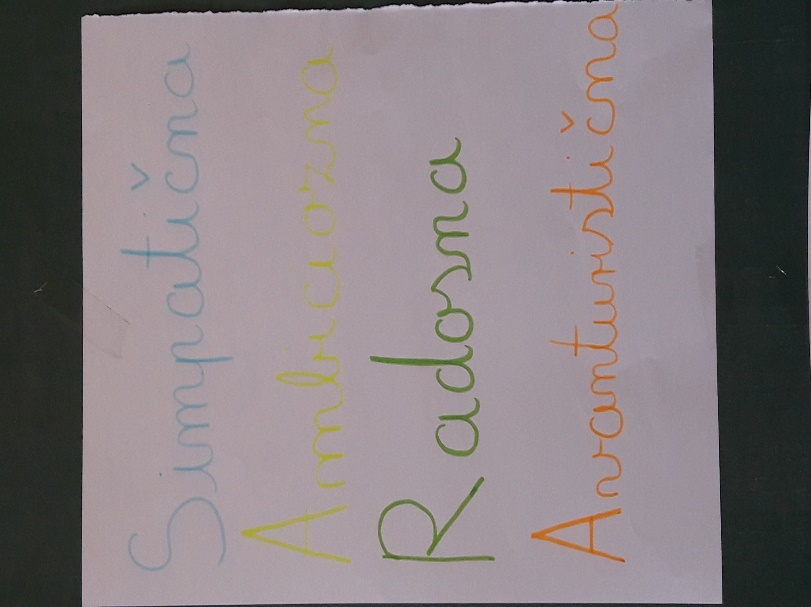 Simpatična
Ambiciozna
Radosna
Avanturistična